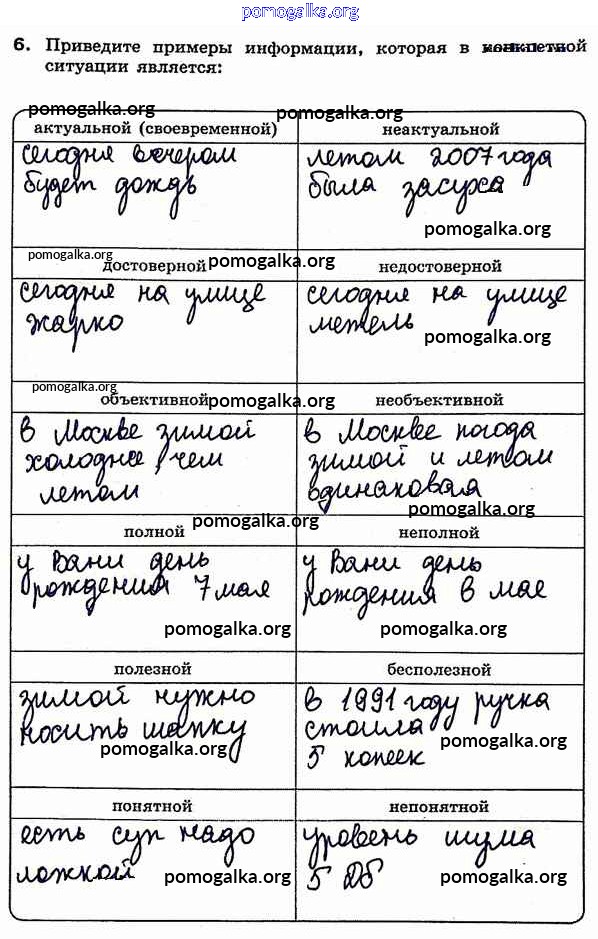 pomogalka.org
6. Приведите примеры информации, которая в
ситуации является:
pomogalka.org pomogalka.org
актуальной (своевременной) неактуальной
сегодня вечером
будет дождь
летом 2007 года
была засуха
pomogalka.org
pomogalka.org pomogalka.org
достоверной недостоверной
сегодня на улице
жарко
сегодня на улице
метель
pomogalka.org
pomogalka.org
объективной pomogalka.org необъективной
в Москве зимой
холоднее, чем
летом
в Москве погода
зимой и летом
одинаковая
pomogalka.org
полной pomogalka.org неполной
у Вани день
рождения 7 мая
pomogalka.org
у Вани день
рождения в мае
pomogalka.org
полезной бесполезной
зимой нужно
носить шапку
pomogalka.org
в 1991 году ручка
стоила
5 копеек
pomogalka.org
понятной непонятной
есть суп надо
ложкой
pomogalka.org
уровень шума
5 Дб
pomogalka.org